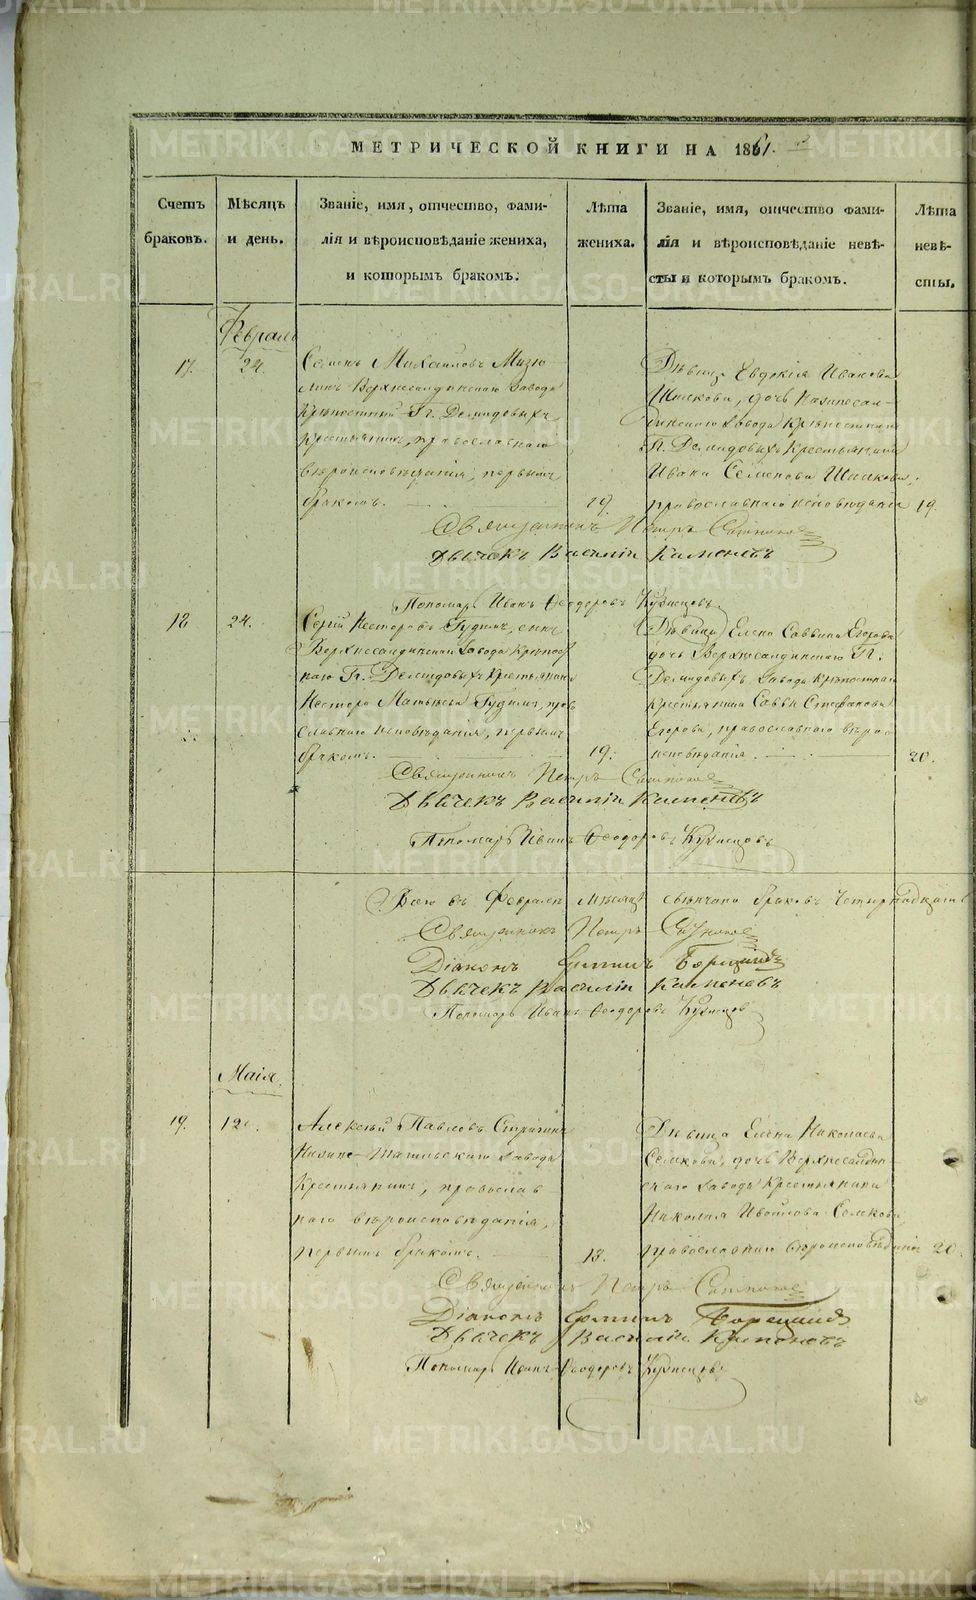 МЕТРИЧЕСКОЙ КНИГИ НА 1861.
Счетъ браковъ.
Мѣсяцъ и день.
Званіе, имя, отчество, фами-
лія и вѣроисповѣданіе жениха,
и которымъ бракомъ.
Лѣта жениха.
Званіе, имя, отчество фами-
лія и вѣроисповѣданіе невѣ-
сты и которымъ бракомъ.
Лѣта невѣ-
сты.
Февраль
17. 24.
Семенъ Михайловъ
Верхнесалдинскаго завода
Крѣпостный Гг. Демидовыхъ
крестьянинъ, православнаго
вѣроисповѣданія, первымъ
бракомъ. 19.
Дѣвица Евдокія Иванова
дочь Нижнесал-
динскаго завода Крѣпостнаго
Гг. Демидовыхъ Крестьянина
Ивана Семенова
православнаго исповѣданія 19.
Священникъ Петръ
Дьячекъ Василій Каменевъ
Пономарь Иванъ Феодоровъ Кузнецовъ
18 24.
Сергій Несторовъ Гудинъ, сынъ
Верхнесалдинскаго завода Крѣпос
наго Гг. Демидовыхъ Крестьянина
Нестора Матвѣева Гудина, пра
славнаго исповѣданія, первымъ
бракомъ. 19.
Дѣвица Елена Саввина Егорова
дочь Верхнесалдинскаго Гг.
Демидовыхъ завода Крѣпостнаго
крестьянина Саввы Стефанова
Егорова, православнаго вѣро
исповѣданія. 20.
Священникъ Петръ
Дьячекъ Василій Каменевъ
Пономарь Иванъ Феодоровъ Кузнецовъ
Всего въ Февралѣ мѣсяцѣ свѣнчано браковъ четырнадцать
Священникъ Петръ
Діаконъ
Дьячекъ Василій Каменевъ
Пономарь Иванъ Феодоровъ Кузнецовъ
Маія
19. 12.
Алексѣй Павловъ
Нижне-Тагильскаго завода
Крестьянинъ, православ
наго вѣроисповѣданія,
первымъ бракомъ. 18.
Дѣвица Елена Николаева
дочь Верхнесалдин
скаго завода Крестьянина
Николая
православнаго вѣроисповѣданія 20.
Священникъ Петръ
Діаконъ
Дьячекъ Василій Каменевъ
Пономарь Иванъ Феодоровъ Кузнецовъ
METRIKI.GASO-URAL.RU